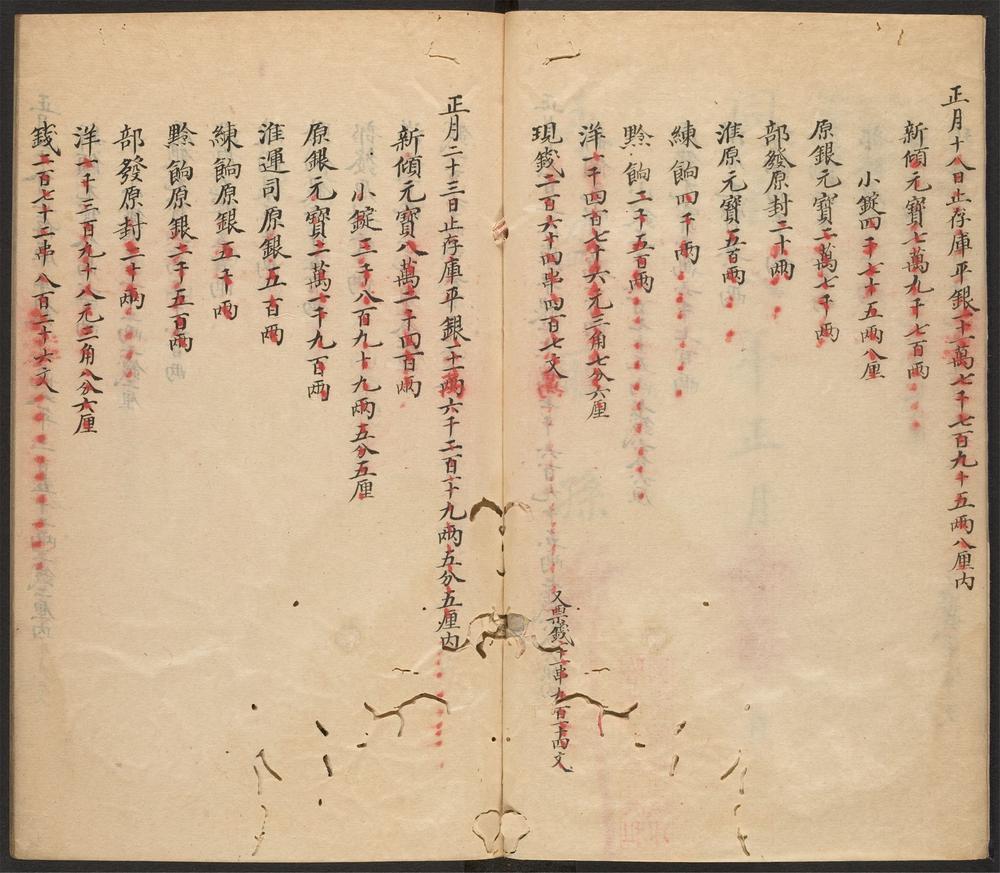 正月十八日止存庫平銀十一萬七千七百九十五兩八厘内
新傾元寶七萬九千七百兩
小錠四千七十五兩八厘
原銀元寶二萬七千兩
部發原封二十兩
淮原元寶五百兩
練餉四千兩
黔餉二千五百兩
洋一千四百七十六元三角七分六厘
現錢二百六十四串四百七文 又票錢十一串九百一十四文
正月二十三日止存庫平銀十一萬六千二百一十九兩五分五厘内
新傾元寶八萬二千四百兩
小錠三千八百九十九兩五分五厘
原銀元寶二萬一千九百兩
淮運司原銀五百兩
練餉原銀五千兩
黔餉原銀二千五百兩
部發原封二十兩
洋一千三百九十八元三角八分六厘
錢二百七十二串八百二十六文